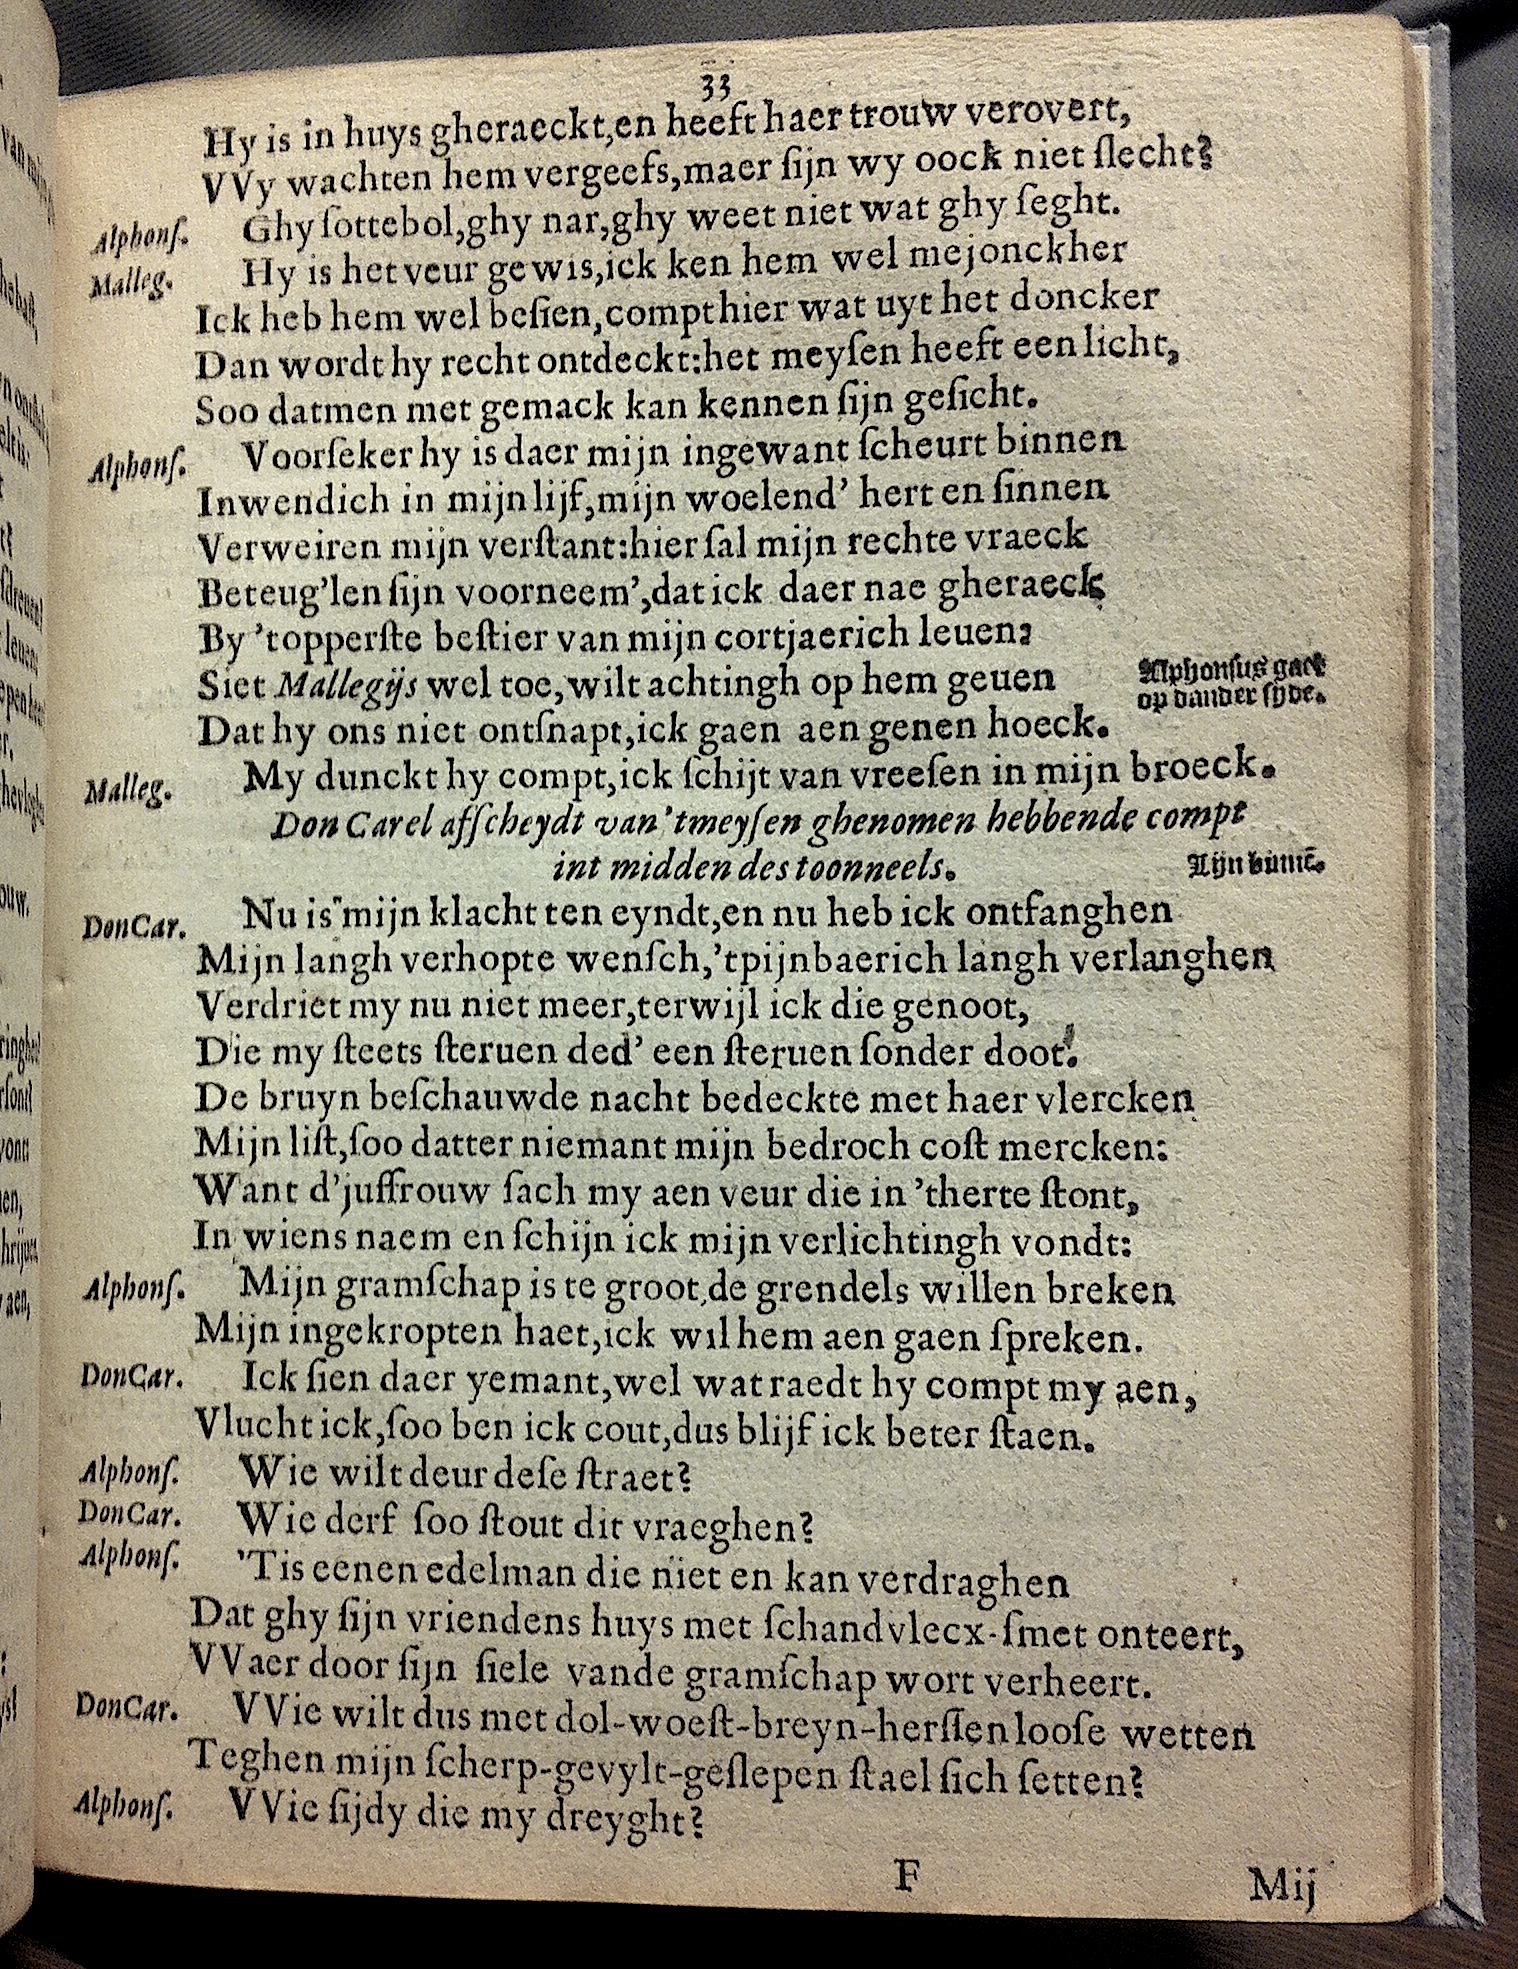 33
Hy is in huys gheraeckt,en heeft haer trouw verovert,
VVy wachten hem vergeefs,maer ſijn wy oock niet ſlecht?
Alphonſ. Ghy ſottebol,ghy nar,ghy weet niet wat ghy ſeght.
Malleg. Hy is het veur gewis,ick ken hem wel mejonckher
Ick heb hem wel beſien,compt hier wat uyt het doncker
Dan wordt hy recht ontdeckt:het meyſen heeft een licht,
Soo datmen met gemack kan kennen ſijn geſicht.
Alphonſ. Voorſeker hy is daer mijn ingewant ſcheurt binnen
Inwendich in mijn lijf,mijn woelend' hert en ſinnen
Verweiren mijn verſtant:hier ſal mijn rechte vraeck
Beteug'len ſijn voorneem',dat ick daer nae gheraeck
By 'topperſte beſtier van mijn cortjaerich leuen:
Siet Mallegijs wel toe,wilt achtingh op hem geuen Alphonſus gaet
op dander ſyde.
Dat hy ons niet ontſnapt,ick gaen aen genen hoeck.
Malleg. My dunckt hy compt,ick ſchijt van vreeſen in mijn broeck.
Don Carel afſcheydt van'tmeyſen ghenomen hebbende compt
int midden des toonneels. Lijn
DonCar. Nu is mijn klacht ten eyndt,en nu heb ick ontfanghen
Mijn langh verhopte wenſch,'tpijnbaerich langh verlanghen
Verdriet my nu niet meer,terwijl ick die genoot,
Die my ſteets ſteruen ded' een ſteruen ſonder doot.
De bruyn beſchauwde nacht bedeckte met haer vlercken
Mijn liſt,ſoo datter niemant mijn bedroch coſt mercken:
Want d'juffrouw ſach my aen veur die in 'therte ſtont,
In wiens naem en ſchijn ick mijn verlichtingh vondt:
Alphonſ. Mijn gramſchap is te groot,de grendels willen breken
Mijn ingekropten haet,ick wil hem aen gaen ſpreken.
DonCar. Ick ſien daer yemant,wel wat raedt hy compt my aen,
Vlucht ick,ſoo ben ick cout,dus blijf ick beter ſtaen.
Alphonſ. Wie wilt deur deſe ſtraet?
DonCar. Wie derf ſoo ſtout dit vraeghen?
Alphonſ. 'Tis eenen edelman die niet en kan verdraghen
Dat ghy ſijn vriendens huys met ſchandvlecx-ſmet onteert,
VVaer door ſijn ſiele vande gramſchap wort verheert.
DonCar. VVie wilt dus met dol-woeſt-breyn-herſſenlooſe wetten
Teghen mijn ſcherp-gevylt-geſlepen ſtael ſich ſetten?
Alphonſ. VVie ſijdy die my dreyght?
F Mij